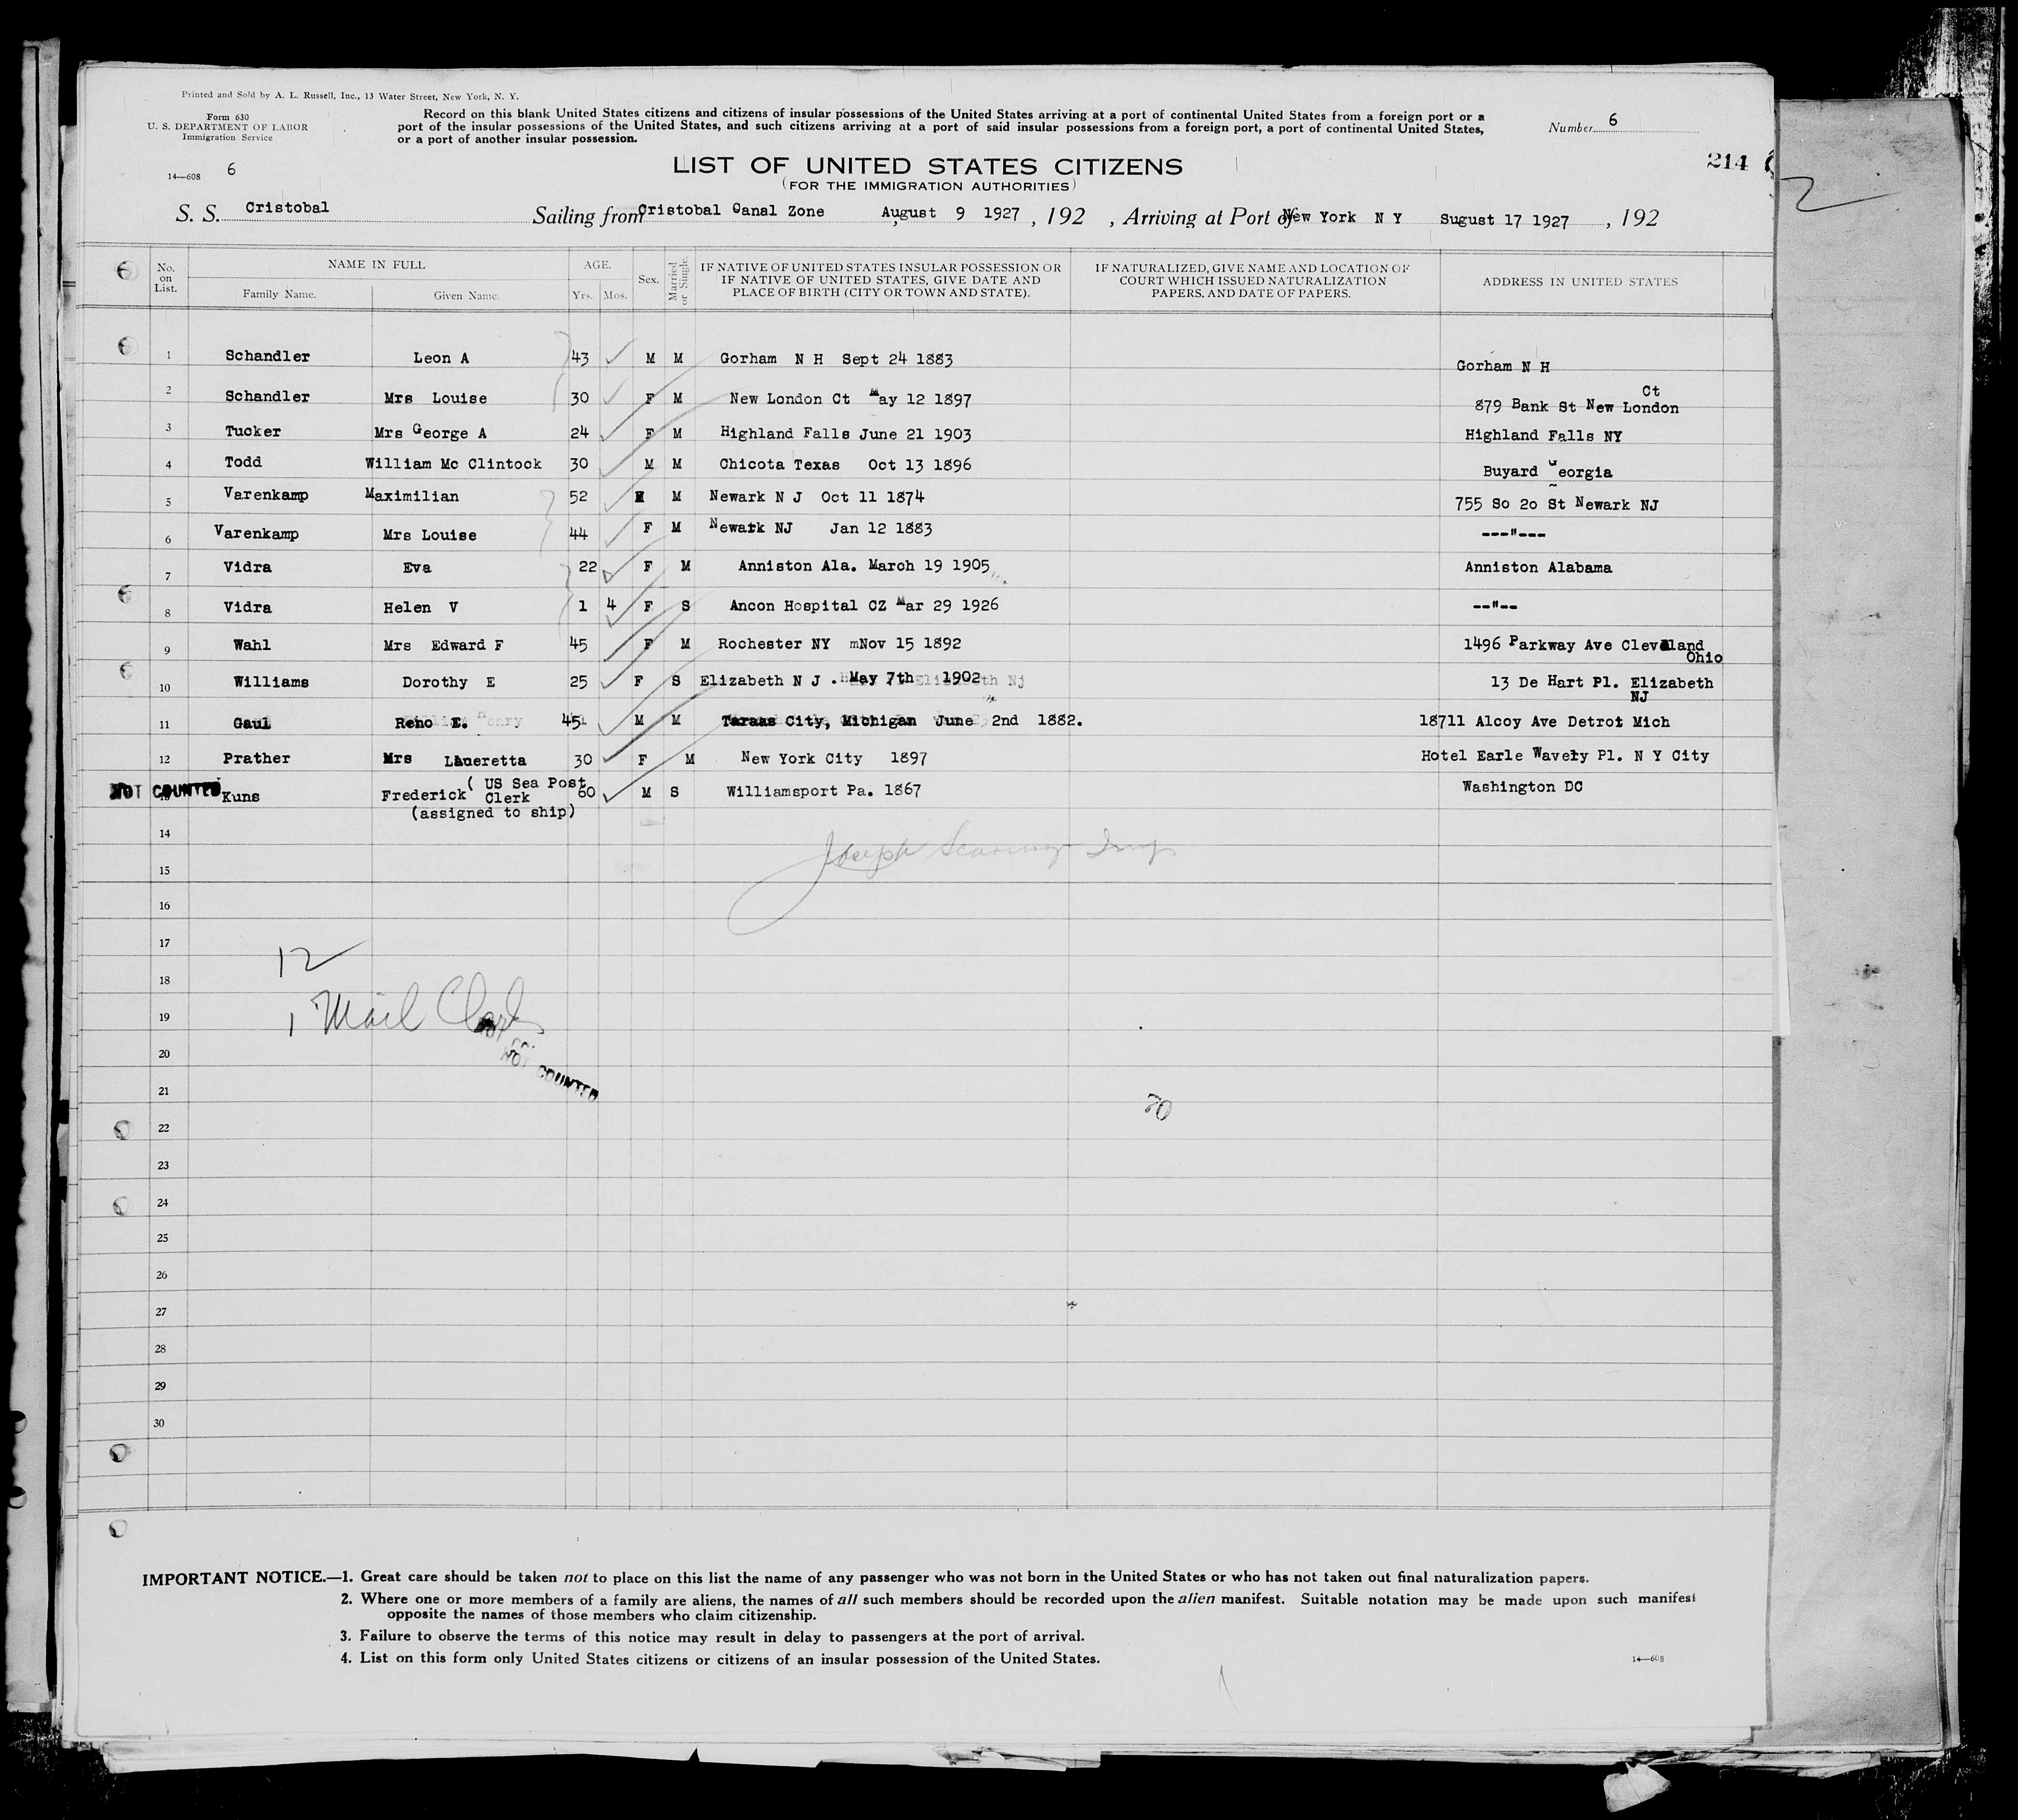 Printed and Sold by A. L. Russell, Inc., 13 Water Street, New York, N. Y.
Form 630
U. S. DEPARTMENT OF LABOR
Immigration Service
14—608 6
Record on this blank United States citizens and citizens of insular possessions of the United States arriving at a port of continental United States from a foreign port or a
port of the insular possessions of the United States, and such citizens arriving at a port of said insular possessions from a foreign port, a port of continental United States,
or a port of another insular possession.
Number 6
214
2
LIST OF UNITED STATES CITIZENS
(FOR THE IMMIGRATION AUTHORITIES)
S. S. Cristobal Sailing from Cristobal Canal Zone August 9 1927 , 192 , Arriving at Port of New York N Y Sugust 17 1927 , 192
No. on List. NAME IN FULL AGE. Sex. Married or Single. IF NATIVE OF UNITED STATES INSULAR POSSESSION OR IF NATIVE OF UNITED STATES, GIVE DATE AND PLACE OF BIRTH (CITY OR TOWN AND STATE). IF NATURALIZED, GIVE NAME AND LOCATION OF COURT WHICH ISSUED NATURALIZATION PAPERS, AND DATE OF PAPERS. ADDRESS IN UNITED STATES
Family Name. Given Name. Yrs. Mos.
1 Schandler Leon A 43 M M Gorham N H Sept 24 1883 Gorham N H
2 Schandler Mrs Louise 30 F M New London Ct May 12 1897 879 Bank St New London Ct
3 Tucker Mrs George A 24 F M Highland Falls June 21 1903 Highland Falls NY
4 Todd William Mc Clintock 30 M M Chicota Texas Oct 13 1896 Buyard Georgia
5 Varenkamp Maximilian 52 M M Newark N J Oct 11 1874 755 So 20 St Newark NJ
6 Varenkamp Mrs Louise 44 F M Newark NJ Jan 12 1883 ---"---
7 Vidra Eva 22 F M Anniston Ala. March 19 1905 Anniston Alabama
8 Vidra Helen V 1 4 F S Ancon Hospital CZ Mar 29 1926 --"--
9 Wahl Mrs Edward F 45 F M Rochester NY mNov 15 1892 1496 Parkway Ave Cleveland Ohio
10 Williams Dorothy E 25 F S Elizabeth N J . May 7th 1902 13 De Hart Pl. Elizabeth NJ
11 Gaul Reno E. 45 M M City, Michigan June 2nd 1882. 18711 Alcoy Ave Detroit Mich
12 Prather Mrs Laueretta 30 F M New York City 1897 Hotel Earle Wavery Pl. N Y City
NOT COUNTED Kuns Frederick ( US Sea Post Clerk 60 M S Williamsport Pa. 1867 Washington DC
(assigned to ship)
14
Joseph
15
16
17
12
18
19
1 Mail Clerk
20
NOT COUNTED
21
70
22
23
24
25
26
27
28
29
30
IMPORTANT NOTICE.—1. Great care should be taken not to place on this list the name of any passenger who was not born in the United States or who has not taken out final naturalization papers.
2. Where one or more members of a family are aliens, the names of all such members should be recorded upon the alien manifest. Suitable notation may be made upon such manifest
opposite the names of those members who claim citizenship.
3. Failure to observe the terms of this notice may result in delay to passengers at the port of arrival.
4. List on this form only United States citizens or citizens of an insular possession of the United States.
14—608